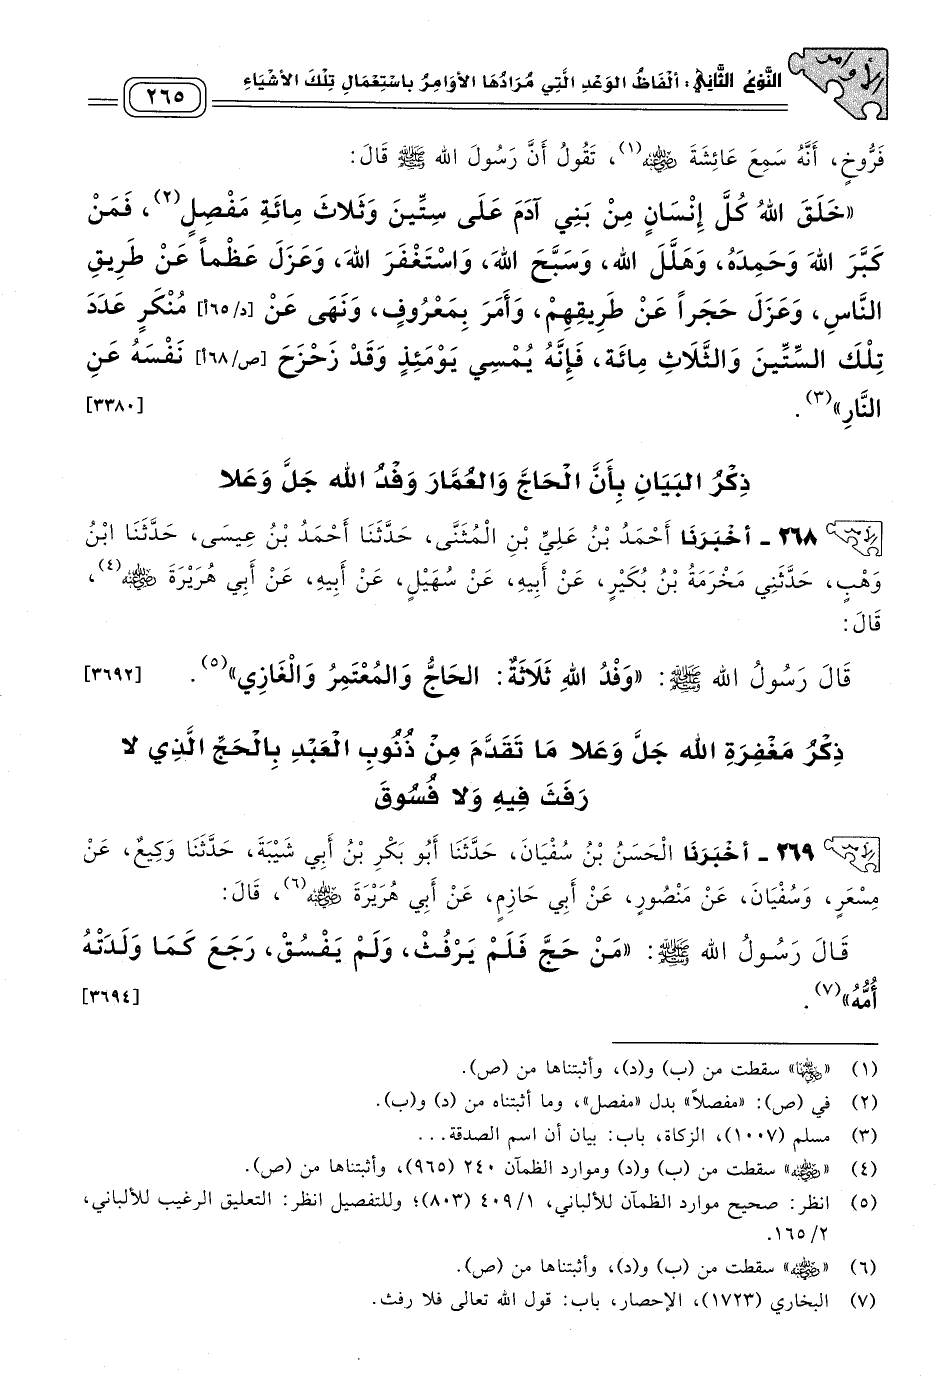 الأوامر
النَّوْعُ الثَّانِي: أَلْفَاظُ الوَعْدِ الَّتِي مُرَادُهَا الأَوَامِرُ بِاسْتِعْمَالِ تِلْكَ الأَشْيَاءِ
٢٦٥
فَرُّوخٍ، أَنَّهُ سَمِعَ عَائِشَةَ ﵂(١)، تَقُولُ أَنَّ رَسُولَ الله ﷺ قَالَ:
«خَلَقَ اللهُ كُلَّ إِنْسَانٍ مِنْ بَنِي آدَمَ عَلَى سِتِّينَ وَثَلَاثِ مِائَةِ مَفْصِلٍ(٢)، فَمَنْ
كَبَّرَ اللهَ وَحَمِدَهُ، وَهَلَّلَ الله، وَسَبَّحَ اللهَ، وَاسْتَغْفَرَ اللهَ، وَعَزَلَ عَظْماً عَنْ طَرِيقِ
النَّاسِ، وَعَزَلَ حَجَراً عَنْ طَرِيقِهِمْ، وَأَمَرَ بِمَعْرُوفٍ، وَنَهَى عَنْ [د/٦٥أ] مُنْكَرٍ عَدَدَ
تِلْكَ السِّتِّينَ وَالثَّلَاثِ مِائَة، فَإِنَّهُ يُمْسِي يَوْمَئِذٍ وَقَدْ زَحْزَحَ [ص/٦٨أ] نَفْسَهُ عَنِ
النَّارِ»(٣). [٣٣٨٠]
ذِكْرُ البَيَانِ بِأَنَّ الْحَاجَّ وَالعُمَّارَ وَفْدُ الله جَلَّ وَعَلا
٢٦٨ ـ أَخْبَرَنَا أَحْمَدُ بْنُ عَلِيِّ بْنِ الْمُثَنَّى، حَدَّثَنَا أَحْمَدُ بْنُ عِيسَى، حَدَّثَنَا ابْنُ
وَهْبٍ، حَدَّثَنِي مَخْرَمَةُ بْنُ بُكَيْرٍ، عَنْ أَبِيهِ، عَنْ سُهَيْلٍ، عَنْ أَبِيهِ، عَنْ أَبِي هُرَيْرَةَ ﵁(٤)،
قَالَ:
قَالَ رَسُولُ الله ﷺ: «وَفْدُ اللهِ ثَلَاثَةٌ: الحَاجُّ وَالْمُعْتَمِرُ وَالْغَازِي»(٥). [٣٦٩٢]
ذِكْرُ مَغْفِرَةِ الله جَلَّ وَعَلا مَا تَقَدَّمَ مِنْ ذُنُوبِ الْعَبْدِ بِالْحَجِّ الَّذِي لا
رَفَثَ فِيهِ وَلا فُسُوقَ
٢٦٩ ـ أَخْبَرَنَا الْحَسَنُ بْنُ سُفْيَانَ، حَدَّثَنَا أَبُو بَكْرِ بْنُ أَبِي شَيْبَةَ، حَدَّثَنَا وَكِيعٌ، عَنْ
مِسْعَرٍ، وَسُفْيَانَ، عَنْ مَنْصُورٍ، عَنْ أَبِي حَازِمٍ، عَنْ أَبِي هُرَيْرَةَ ﵁(٦)، قَالَ:
قَالَ رَسُولُ الله ﷺ: «مَنْ حَجَّ فَلَمْ يَرْفُثْ، وَلَمْ يَفْسُقْ، رَجَعَ كَمَا وَلَدَتْهُ
أُمُّهُ»(٧). [٣٦٩٤]
(١) «﵂» سقطت من (ب) و(د)، وأثبتناها من (ص).
(٢) في (ص): «مفصلاً» بدل «مفصل»، وما أثبتناه من (د) و(ب).
(٣) مسلم (١٠٠٧)، الزكاة، باب: بيان أن اسم الصدقة...
(٤) «﵁» سقطت من (ب) و(د) وموارد الظمآن ٢٤٠ (٩٦٥)، وأثبتناها من (ص).
(٥) انظر: صحيح موارد الظمآن للألباني، ٤٠٩/١ (٨٠٣)؛ وللتفصيل انظر: التعليق الرغيب للألباني،
١٦٥/٢.
(٦) «﵁» سقطت من (ب) و(د)، وأثبتناها من (ص).
(٧) البخاري (١٧٢٣)، الإحصار، باب: قول الله تعالى فلا رفث.